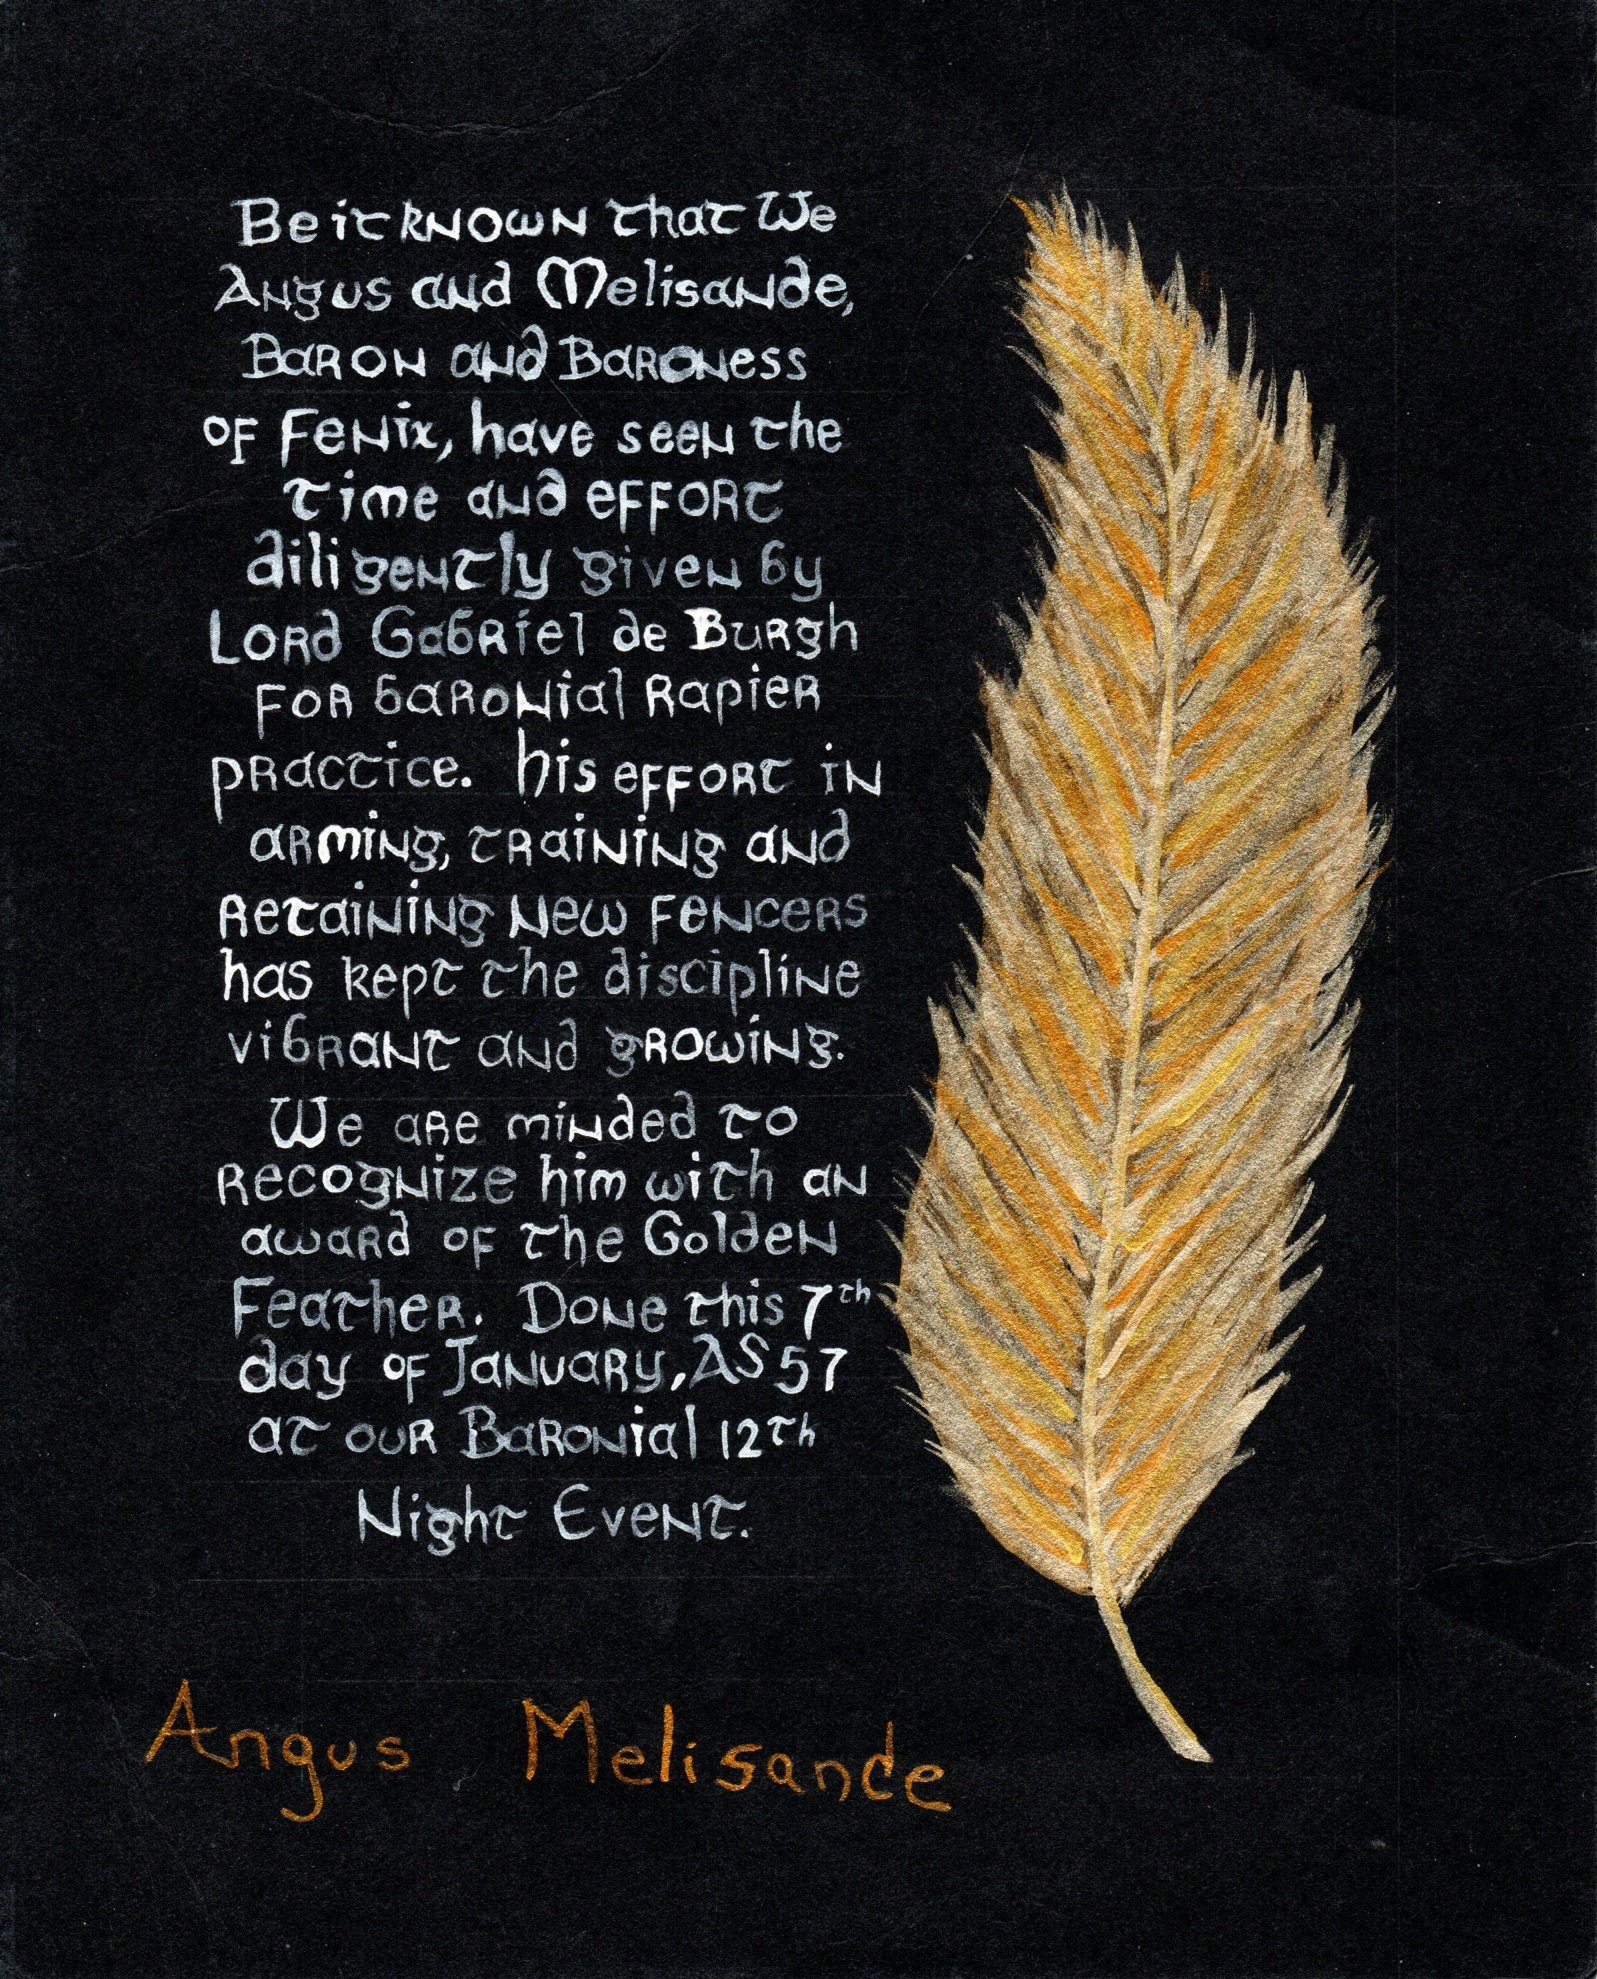 Be it known that We
Angus and Melisande,
Baron and Baroness
of Fenix, have seen the
time and effort
diligently given by
Lord Gabriel de Burgh
for baronial rapier
practice. His effort in
arming, training and
retaining new fencers
has kept the discipline
vibrant and growing.
We are minded to
recognize him with an
award of the Golden
Feather. Done this 7th
day of January, AS 57
at our Baronial 12th
Night Event.
Angus Melisande